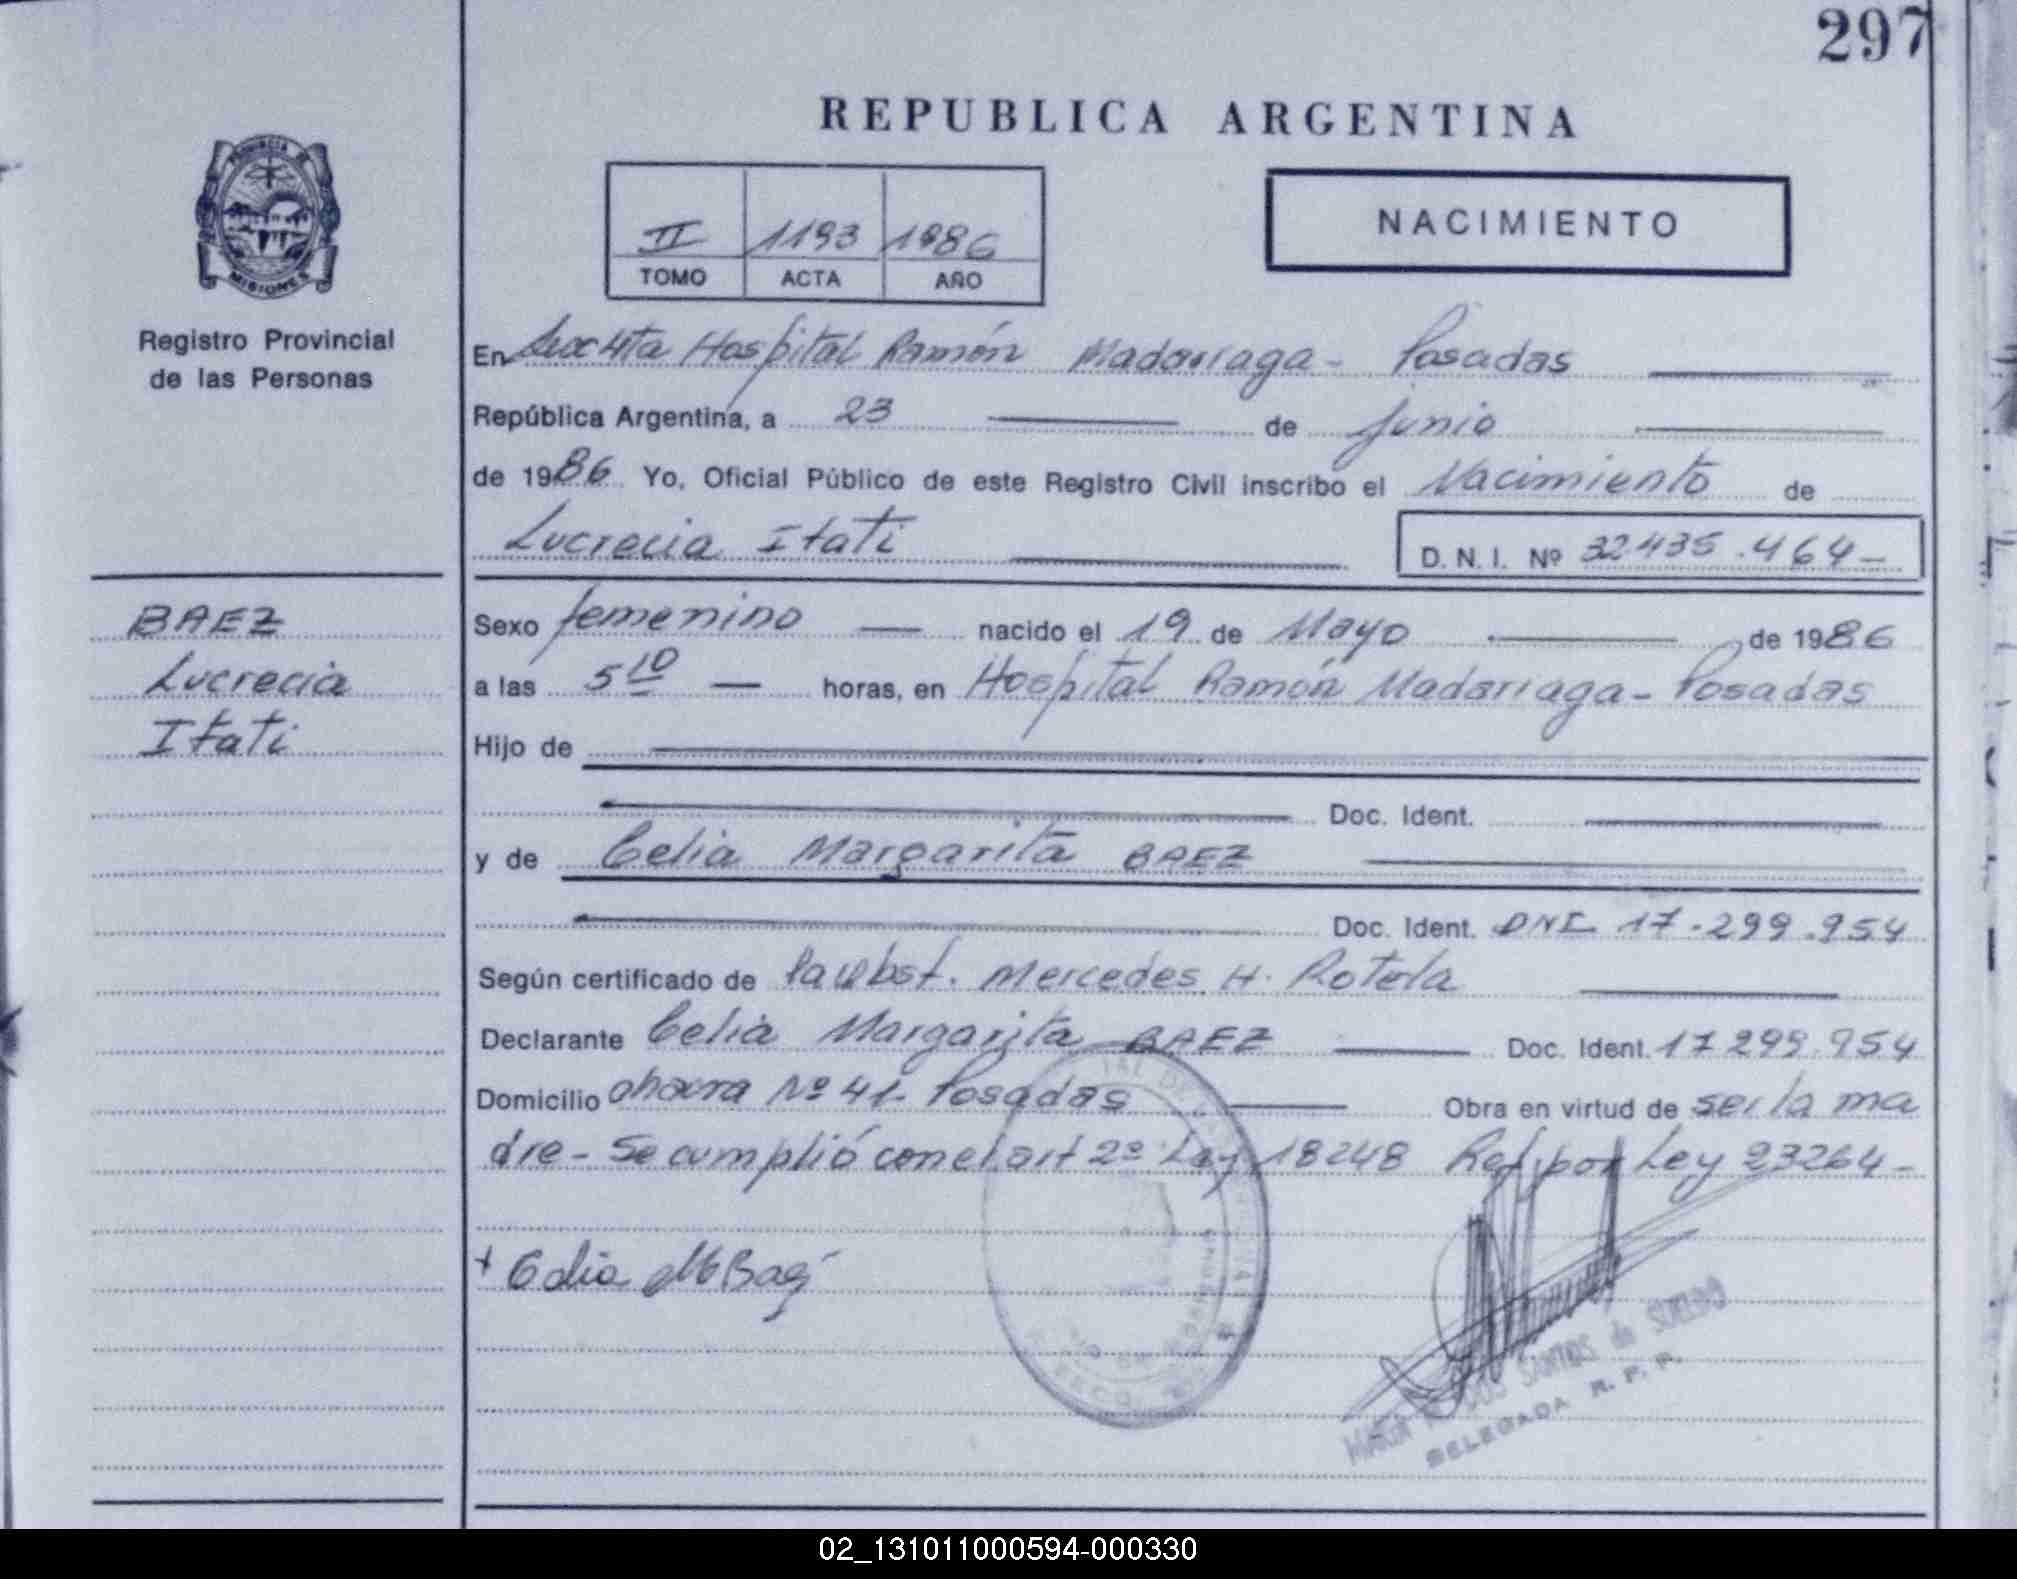 297
REPUBLICA ARGENTINA
PROVINCIA DE
MISIONES
Registro Provincial
de las Personas
II 1193 1986
TOMO ACTA AÑO
NACIMIENTO
En Secc 4ta Hospital Ramón Madariaga - Posadas
República Argentina, a 23 de junio
de 1986 Yo, Oficial Público de este Registro Civil inscribo el Nacimiento de
Lucrecia Itati
D. N. I. Nº 32435.464-
BAEZ
Lucrecia
Itati
Sexo femenino nacido el 19 de Mayo de 1986
a las 5 10 horas, en Hospital Ramón Madariaga - Posadas
Hijo de
Doc. Ident.
y de Celia Margarita BAEZ
Doc. Ident. DNI 17.299.954
Según certificado de Mercedes H. Rotela
Declarante Celia Margarita BAEZ Doc. Ident. 17 299.954
Domicilio chacra Nº 41- Posadas Obra en virtud de ser la ma
dre - Se cumplió con el art 2º Ley 18248 Ref por Ley 23264-
+ Celia M Baez
MARIA SANTOS de SUELDO
DELEGADA R. P. P.
02_131011000594-000330